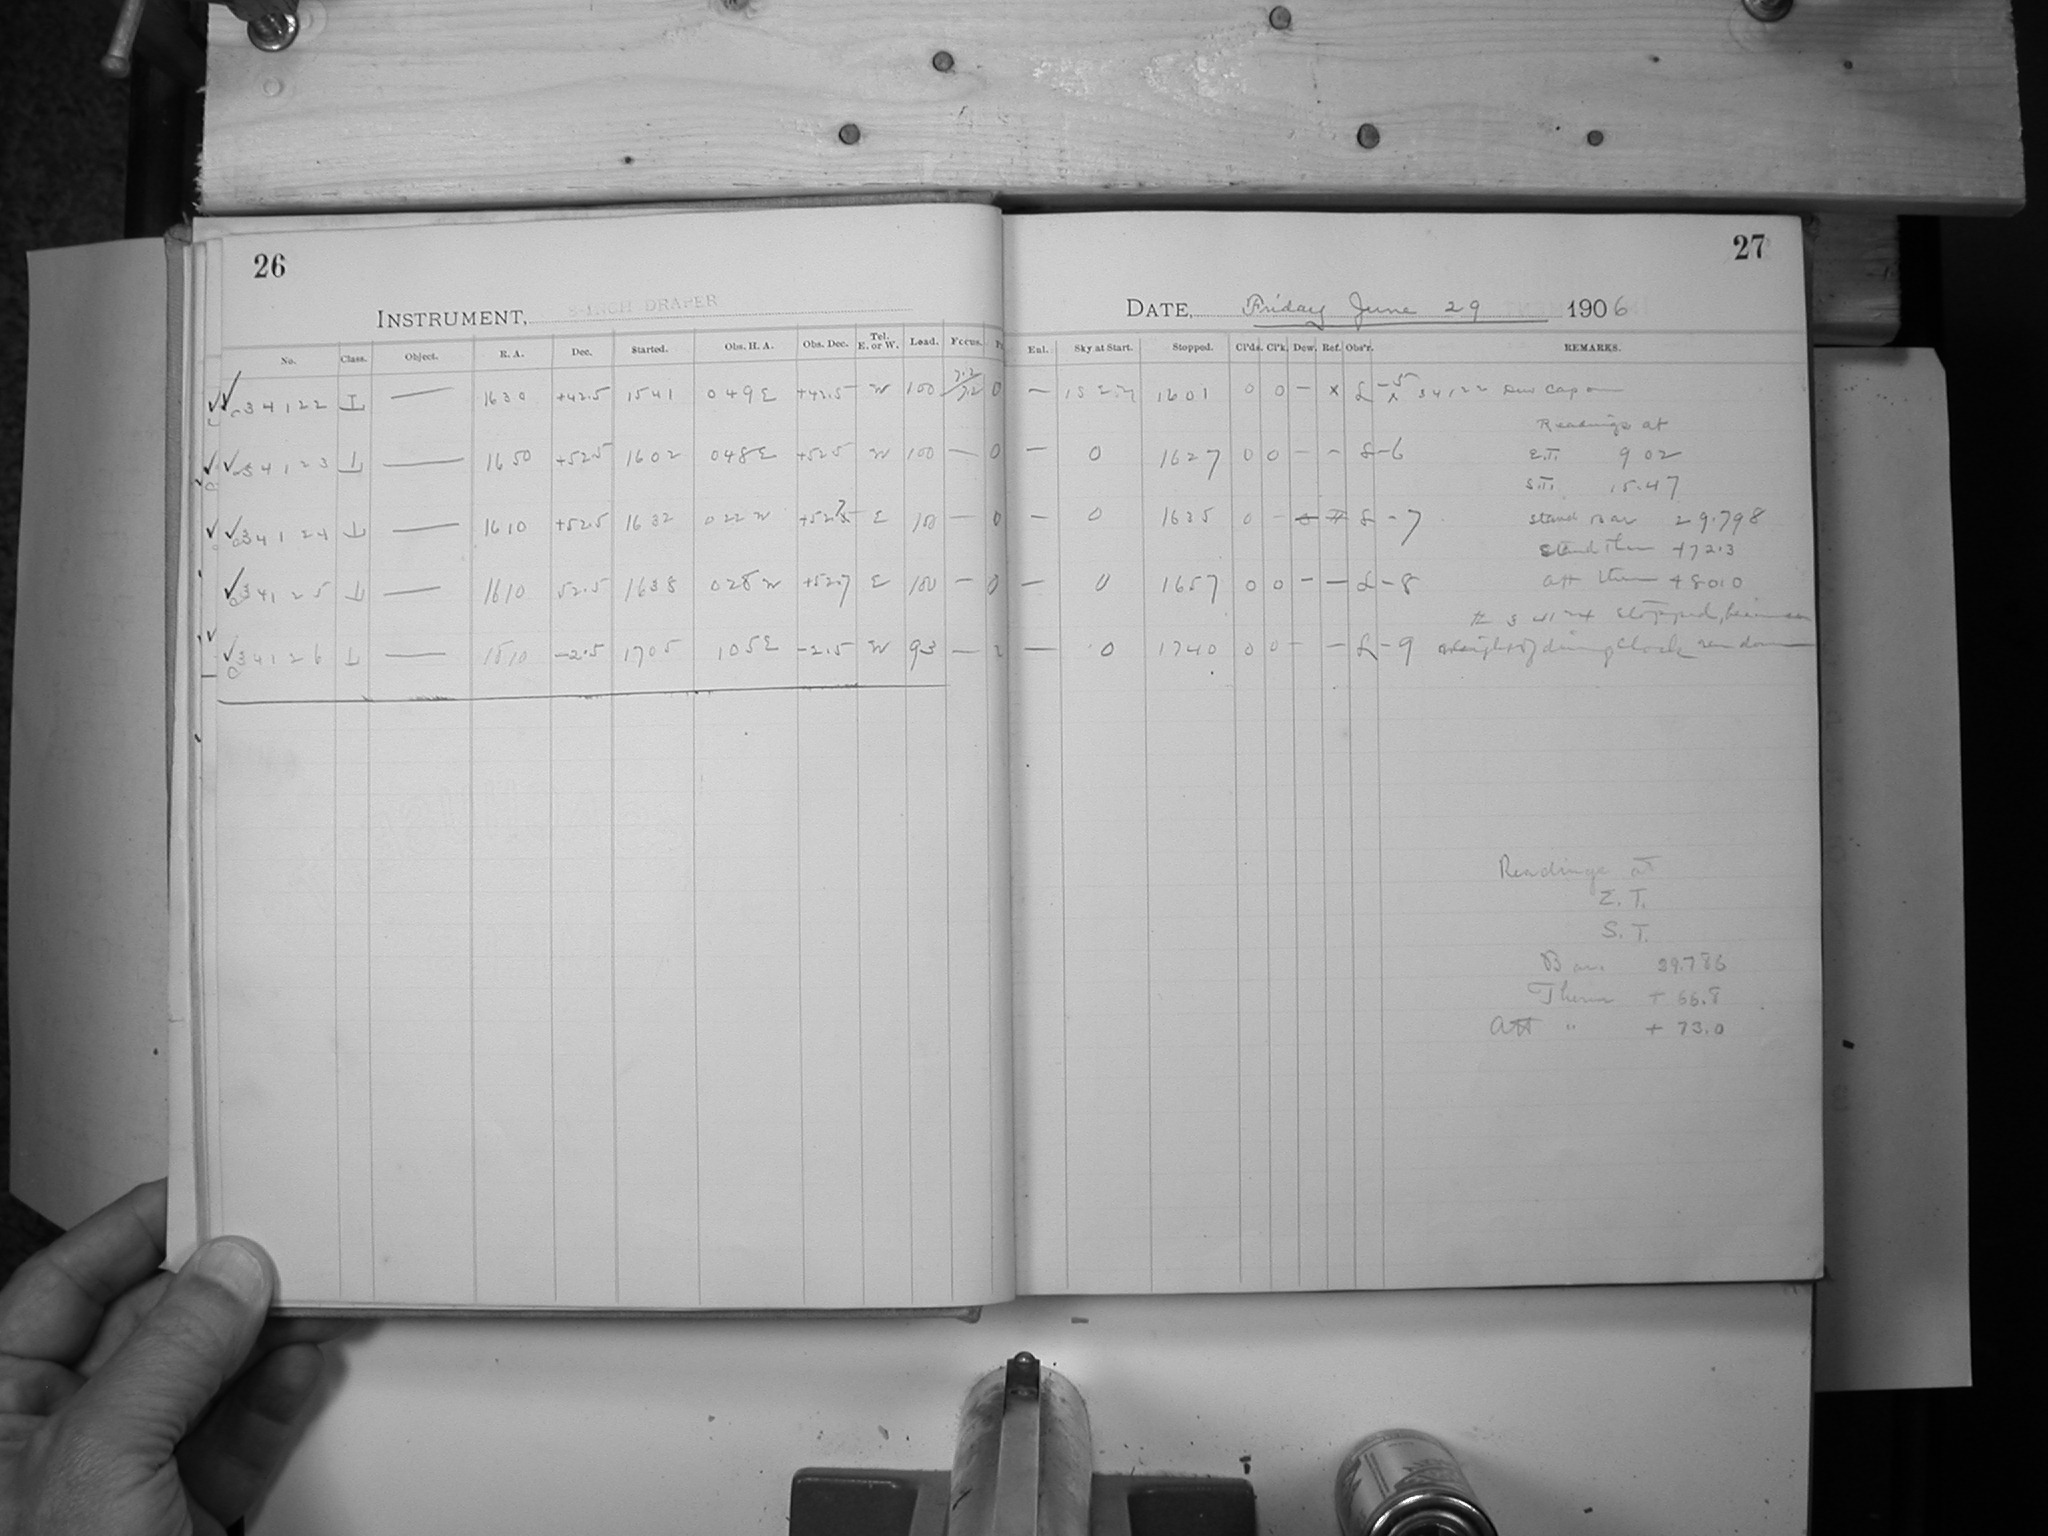 26
INSTRUMENT, 8-INCH DRAPER
No. Class. Object. R. A. Dec. Started. Obs. H. A. Obs. Dec. Tel. E. or W. Load. Focus.
34122 I — 1630 +42.5 1541 049E +42.5 W 100 7.2 0
34123 I — 1650 +52.5 1602 048E +52.5 W 100 — 0
34124 I — 1610 +52.5 1632 022W E 100 — 0
34125 I — 1610 52.5 1638 028W +52.7 E 100 — 0
34126 I — 1610 -2.5 1705 105E -2.5 W 93 — 2
27
DATE, Friday June 29 1906
Eul. Sky at Start. Stopped. Cl'ds. Cl'k. Dew. Ref. Obs'r. REMARKS.
— 1601 0 0 — x L -5 x 34122 Dew cap on
Readings at
— 0 1627 0 0 — — L -6 E.T. 9 02
S.T. 15.47
— 0 1635 0 - L -7 Stand Bar 29.798
Stand Ther +72.3
— 0 1657 0 0 — — L -8 Att Ther +80.0
# 34124 stopped, because
— 0 1740 0 0 — — L -9 weight of driving clock ran down
Readings at
E. T.
S. T.
Bar. 29.786
Therm + 66.8
Att " + 73.0